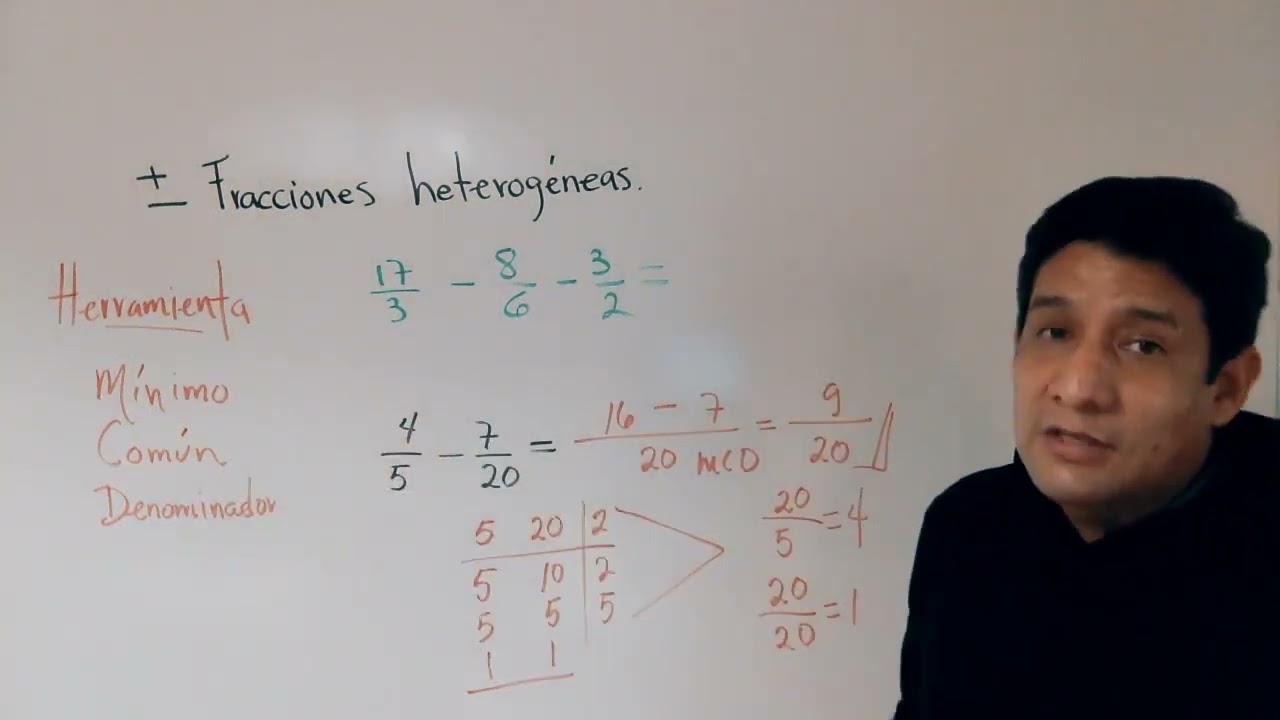 ± Fracciones heterogéneas.
Herramienta
Mínimo
Común
Denominador
17/3 - 8/6 - 3/2 =
4/5 - 7/20 = 16 - 7/20 mCD = 9/20
5 20 | 2
5 10 | 2
5 5 | 5
1 1
20/5 = 4
20/20 = 1